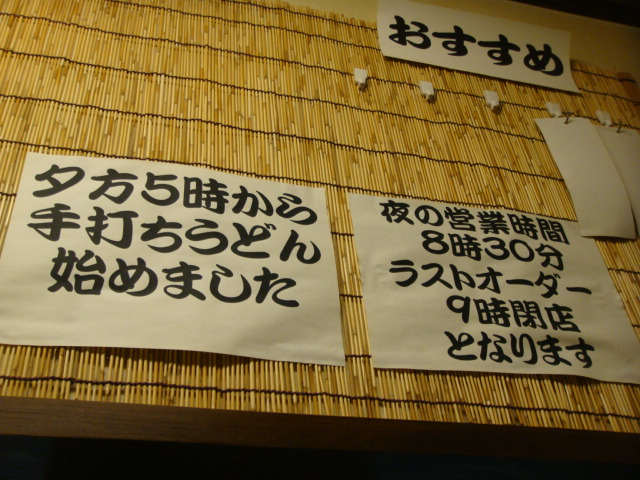 おすすめ
夕方5時から
手打ちうどん
始めました
夜の営業時間
8時30分
ラストオーダー
9時閉店
となります